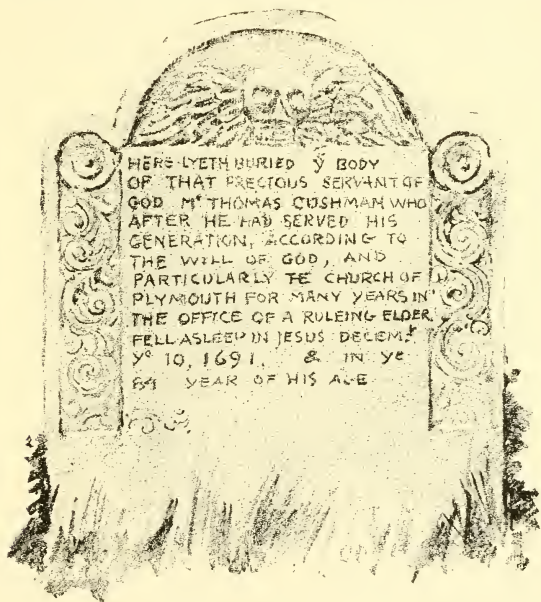 HERE LYETH BURIED Yᵉ BODY
OF THAT PRECIOUS SERVANT OF
GOD Mʳ THOMAS CUSHMAN WHO
AFTER HE HAD SERVED HIS
GENERATION, ACCORDING TO
THE WILL OF GOD, AND
PARTICULARLY TE CHURCH OF
PLYMOUTH FOR MANY YEARS IN
THE OFFICE OF A RULEING ELDER
FELL ASLEEP IN JESUS DECEMʳ
Yᵉ 10, 1691, & IN Yᵉ
84 YEAR OF HIS AGE